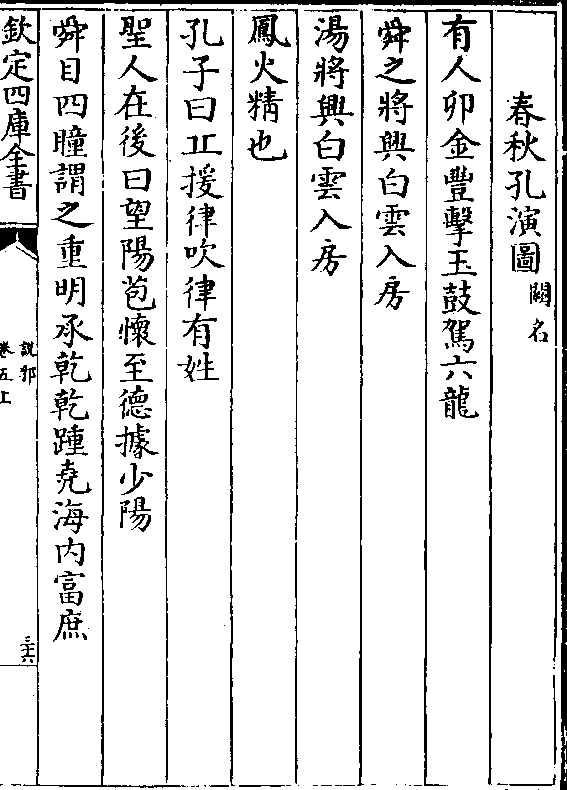 春秋孔演圖闕名
有人卯金豐擊玉鼓駕六龍
舜之將興白雲入房
湯將興白雲入房
鳳火精也
孔子曰丠援律吹律有姓
聖人在後曰望陽苞懷至德據少陽
舜目四瞳謂之重明承乾乾踵堯海内富庶
欽定四庫全書
說郛
卷五上
三十六